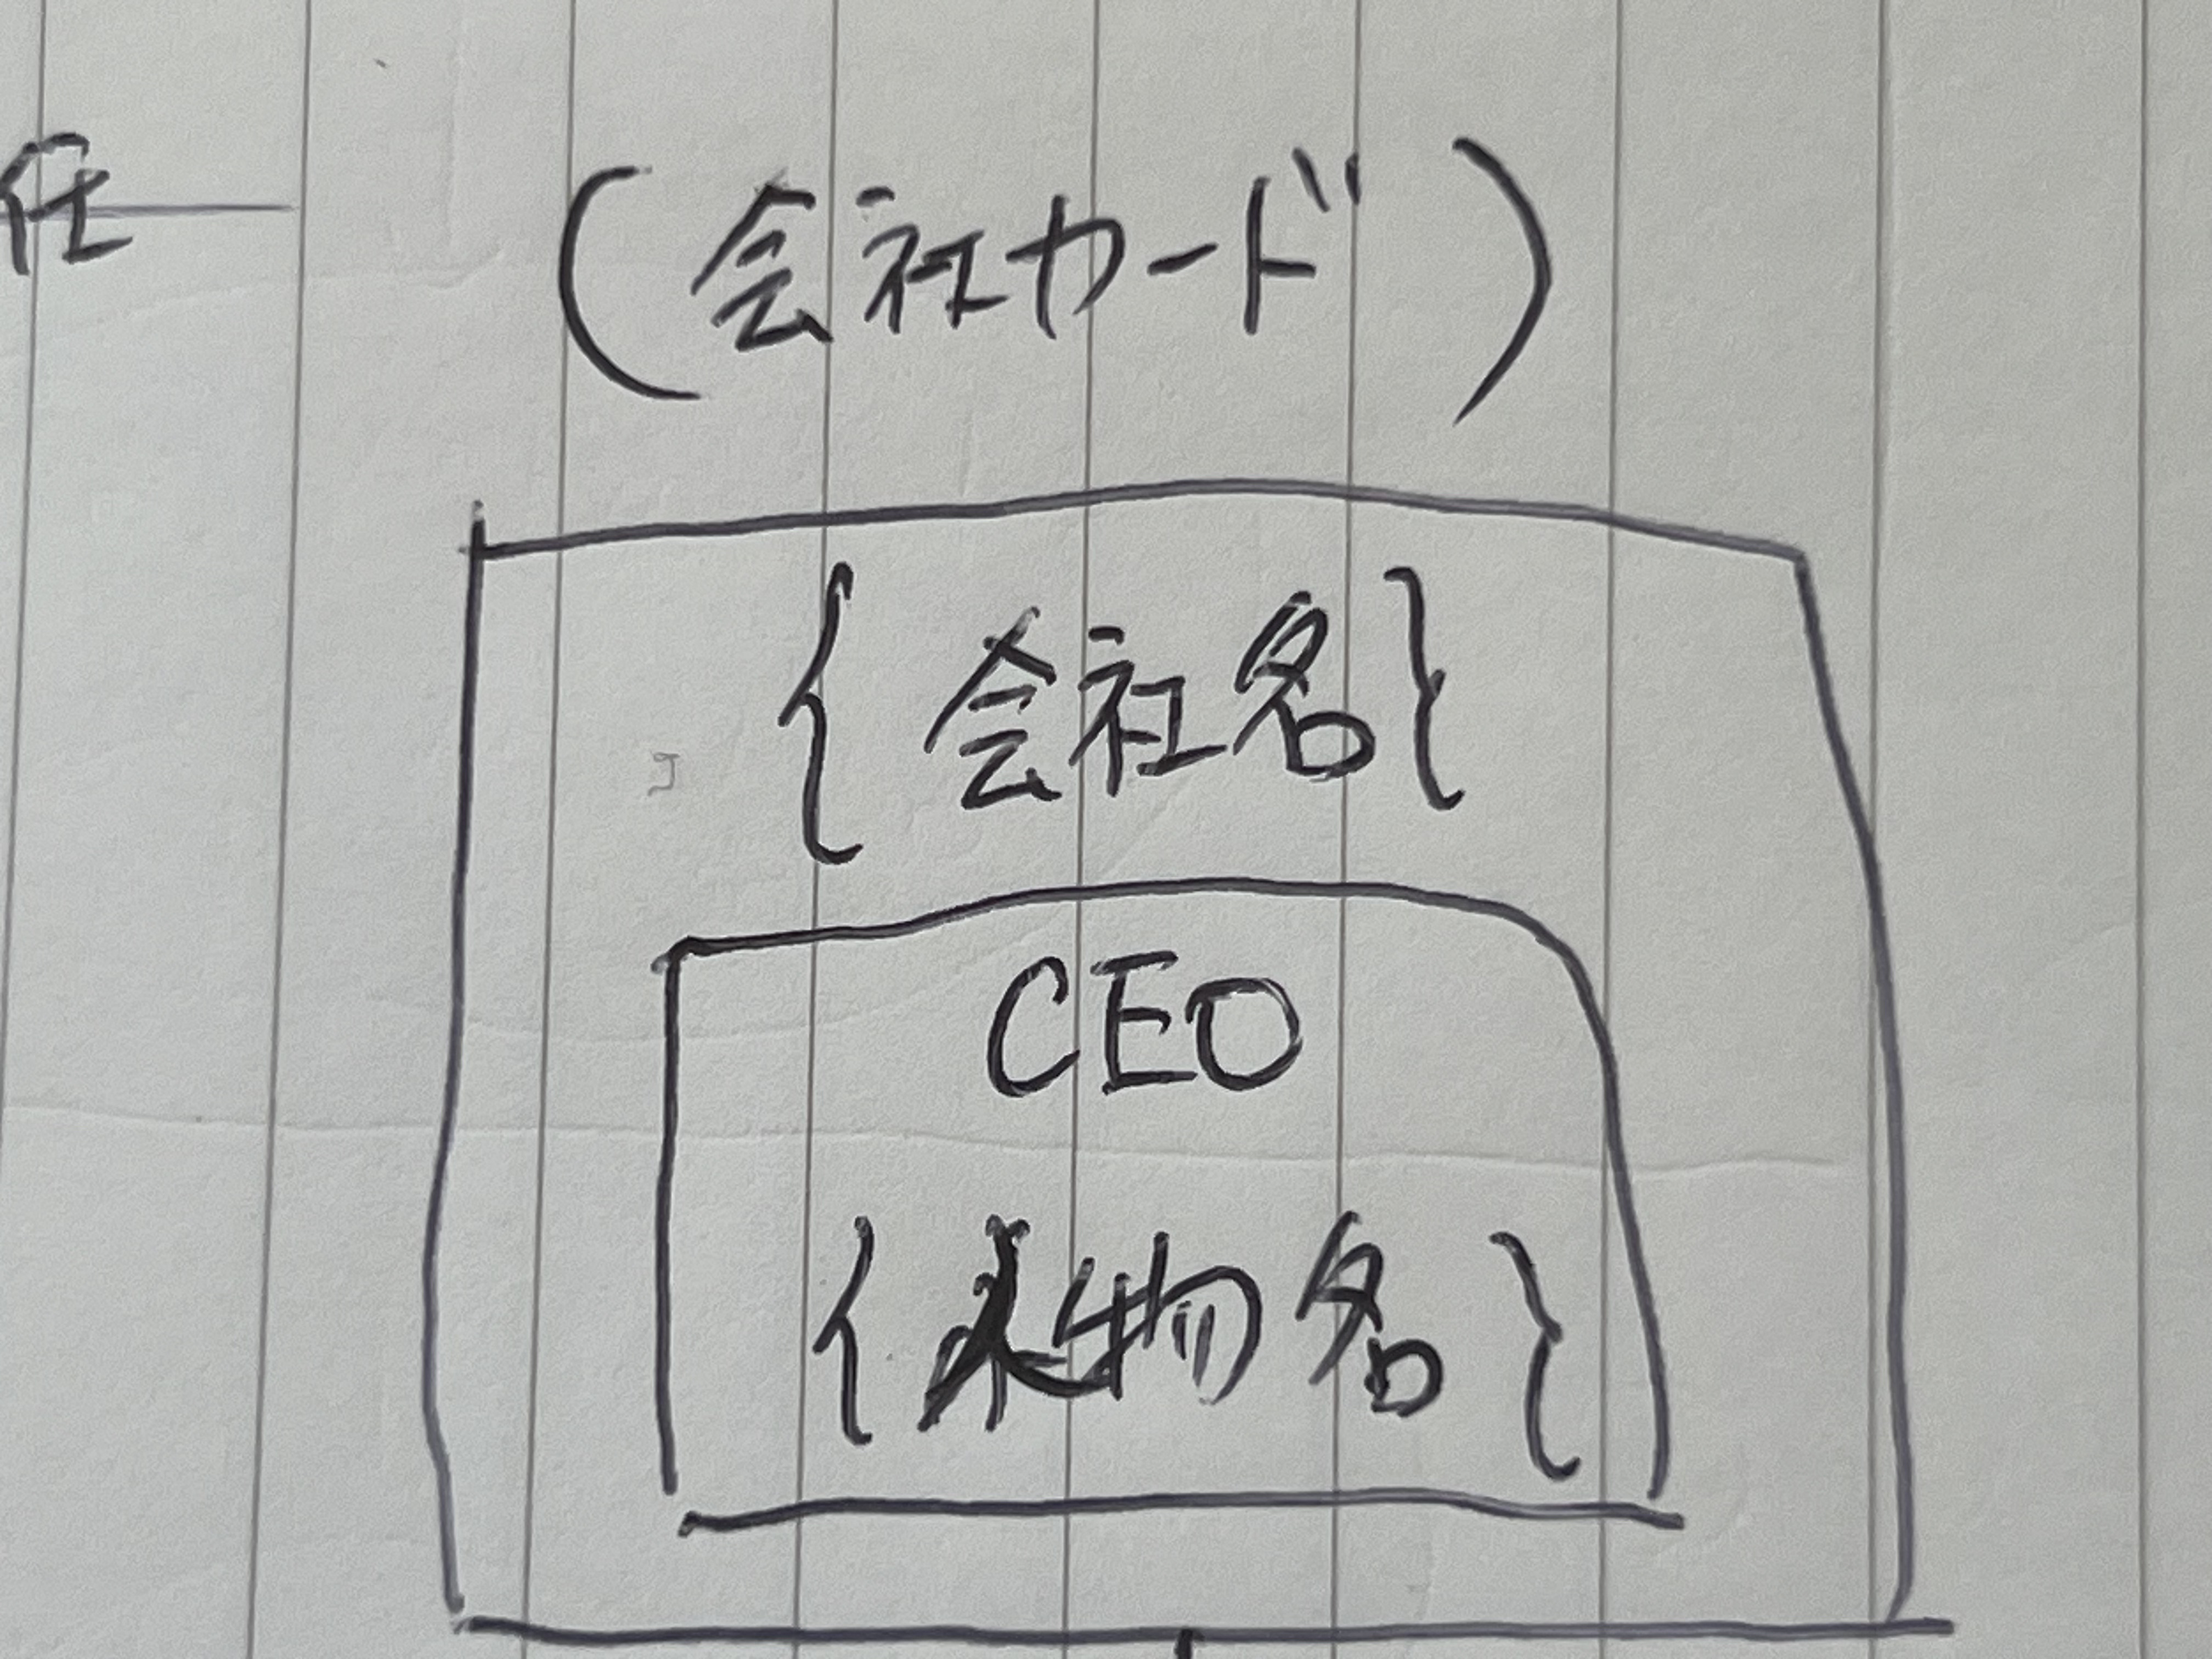 任
(会社カード)
{会社名}
CEO
{人物名}